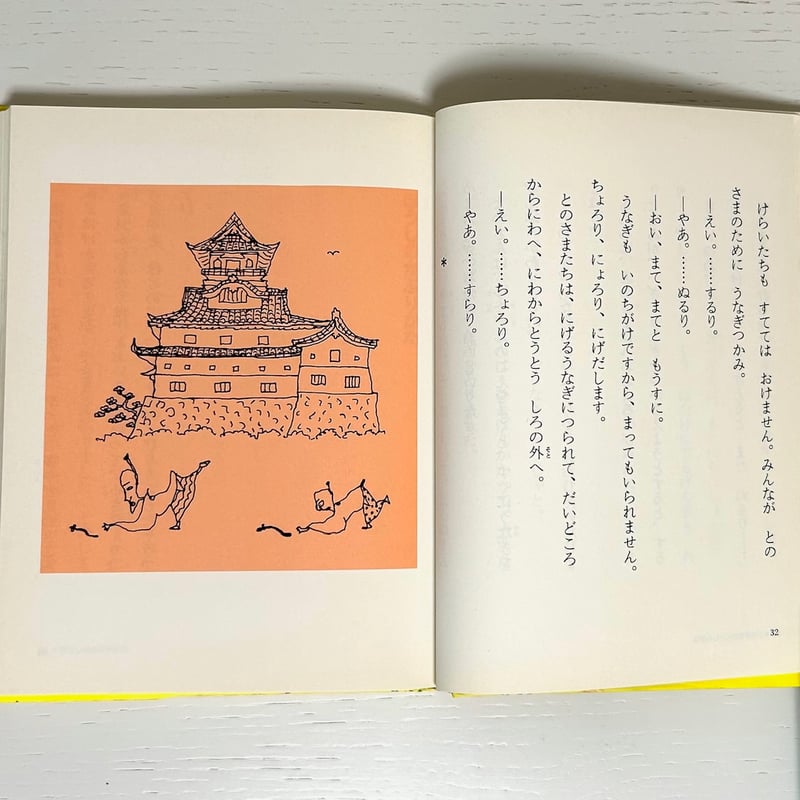 けらいたちも　すてては　おけません。みんなが　との
さまのために　うなぎつかみ。
―えい。……するり。
―やあ。……ぬるり。
―おい、まて、まてと　もうすに。
うなぎも　いのちがけですから、まってもいられません。
ちょろり、にょろり、にげだします。
とのさまたちは、にげるうなぎにつられて、だいどころ
からにわへ、にわからとうとう　しろの外へ。
そと
―えい。……ちょろり。
―やあ。……すらり。
*
32